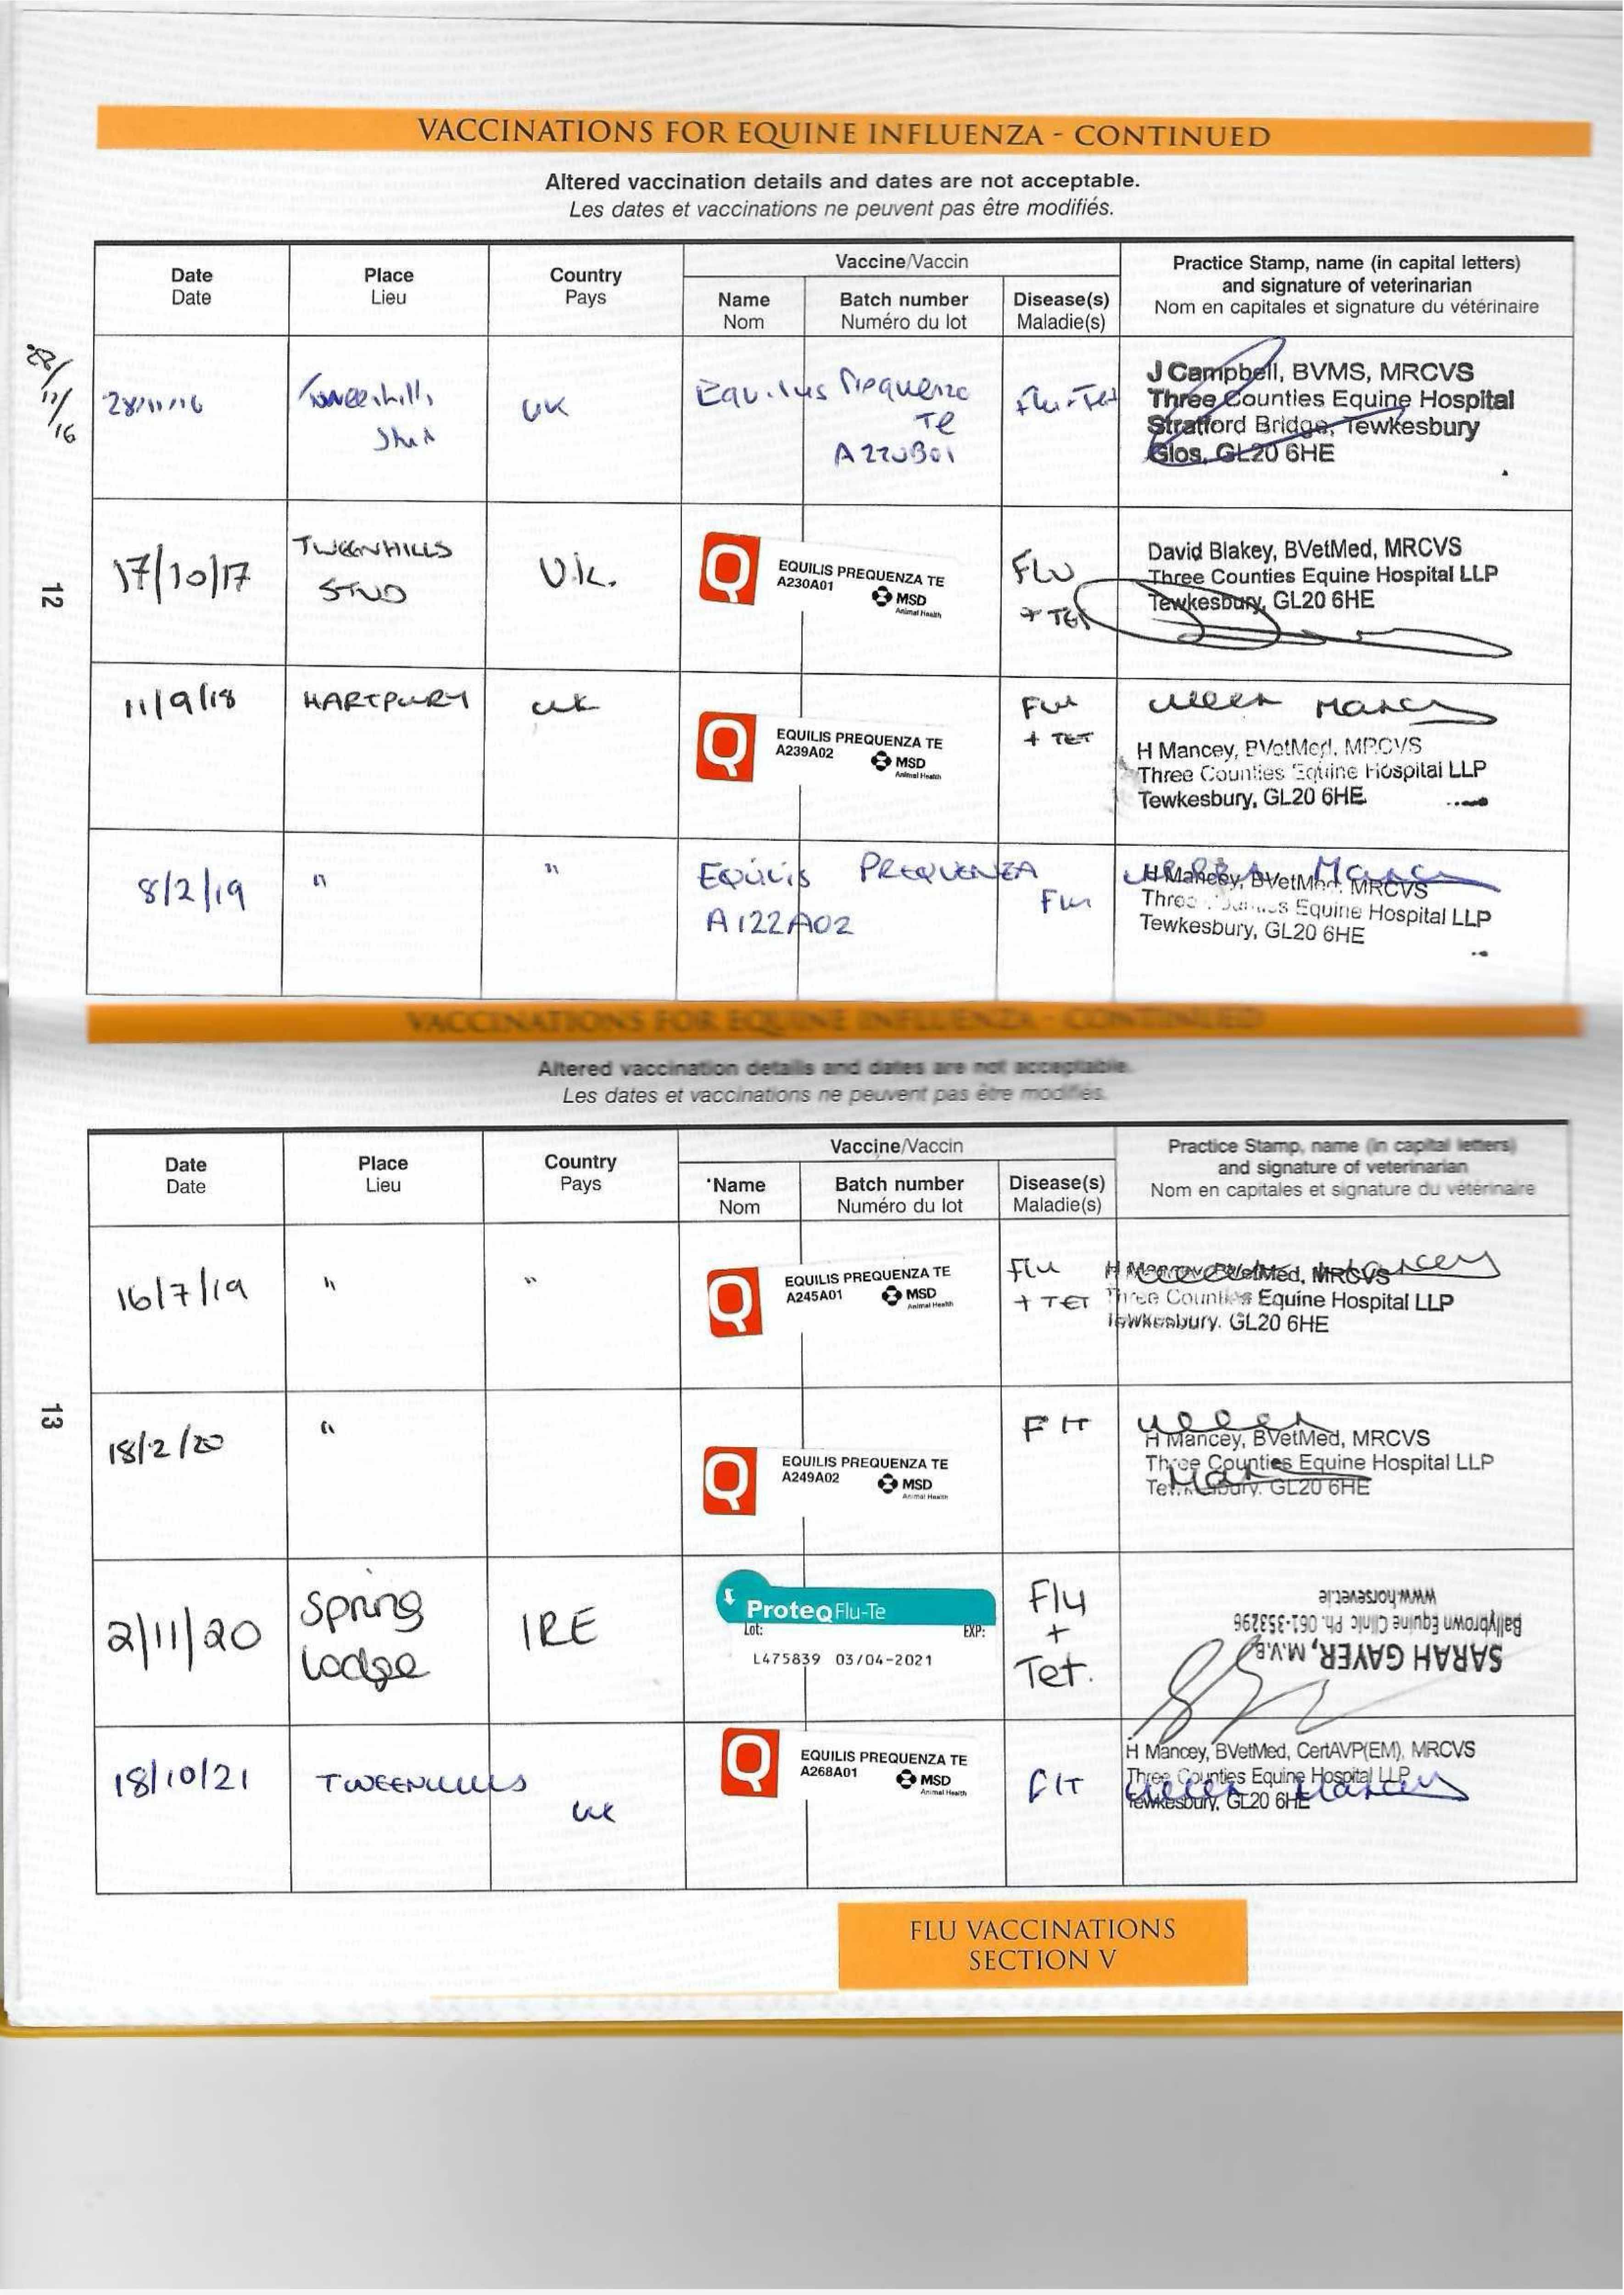 VACCINATIONS FOR EQUINE INFLUENZA - CONTINUED
Altered vaccination details and dates are not acceptable.
Les dates et vaccinations ne peuvent pas être modifiés.
Date
Date
Place
Lieu
Country
Pays
Vaccine/Vaccin
Name
Nom
Batch number
Numéro du lot
Disease(s)
Maladie(s)
Practice Stamp, name (in capital letters)
and signature of veterinarian
Nom en capitales et signature du vétérinaire
28/
11/
16
28/11/16
Tweenhills
Stud
UK
Equilis Prequenza
Te
A220B01
Flu-Tet
J Campbell, BVMS, MRCVS
Three Counties Equine Hospital
Stratford Bridge, Tewkesbury
Glos, GL20 6HE
12
17/10/17
TWEENHILLS
STUD
U.K.
Q
EQUILIS PREQUENZA TE
A230A01
MSD
Animal Health
FLU
+ TET
David Blakey, BVetMed, MRCVS
Three Counties Equine Hospital LLP
Tewkesbury, GL20 6HE
11/9/18
HARTPURY
UK
Q
EQUILIS PREQUENZA TE
A239A02
MSD
Animal Health
Flu
+ TET
Helen Mancey
H Mancey, BVetMed, MRCVS
Three Counties Equine Hospital LLP
Tewkesbury, GL20 6HE
8/2/19
"
"
EQUILIS PREQUENZA
A122A02
Flu
H Mancey, BVetMed, MRCVS
Three Counties Equine Hospital LLP
Tewkesbury, GL20 6HE
VACCINATIONS FOR EQUINE INFLUENZA - CONTINUED
Altered vaccination details and dates are not acceptable.
Les dates et vaccinations ne peuvent pas être modifiés.
Date
Date
Place
Lieu
Country
Pays
Vaccine/Vaccin
Name
Nom
Batch number
Numéro du lot
Disease(s)
Maladie(s)
Practice Stamp, name (in capital letters)
and signature of veterinarian
Nom en capitales et signature du vétérinaire
16/7/19
"
"
Q
EQUILIS PREQUENZA TE
A245A01
MSD
Animal Health
Flu
+ TET
H Mancey, BVetMed, MRCVS
Three Counties Equine Hospital LLP
Tewkesbury. GL20 6HE
13
18/2/20
"
Q
EQUILIS PREQUENZA TE
A249A02
MSD
Animal Health
F/T
Helen
H Mancey, BVetMed, MRCVS
Three Counties Equine Hospital LLP
Mancey
Tewkesbury. GL20 6HE
2/11/20
Spring
Lodge
IRE
ProteqFlu-Te
Lot: EXP:
L475839 03/04-2021
Flu
+
Tet.
SARAH GAYER, M.V.B.
Ballybrown Equine Clinic Ph. 061-353296
www.horsevet.ie
18/10/21
TWEENHILLS
UK
Q
EQUILIS PREQUENZA TE
A268A01
MSD
Animal Health
F/T
H Mancey, BVetMed, CertAVP(EM), MRCVS
Three Counties Equine Hospital LLP
Helen Mancey
Tewkesbury, GL20 6HE
FLU VACCINATIONS
SECTION V